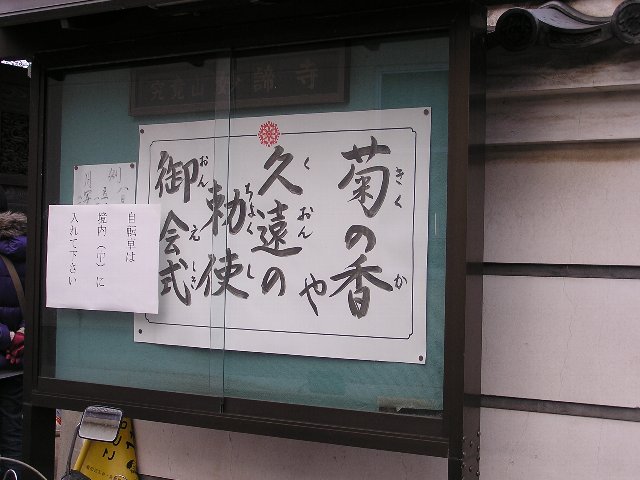 菊の香や
きく か
久遠の
くおん
勅使
ちょくし
御会式
おんえしき
自転車は
境内(中)に
入れて下さい